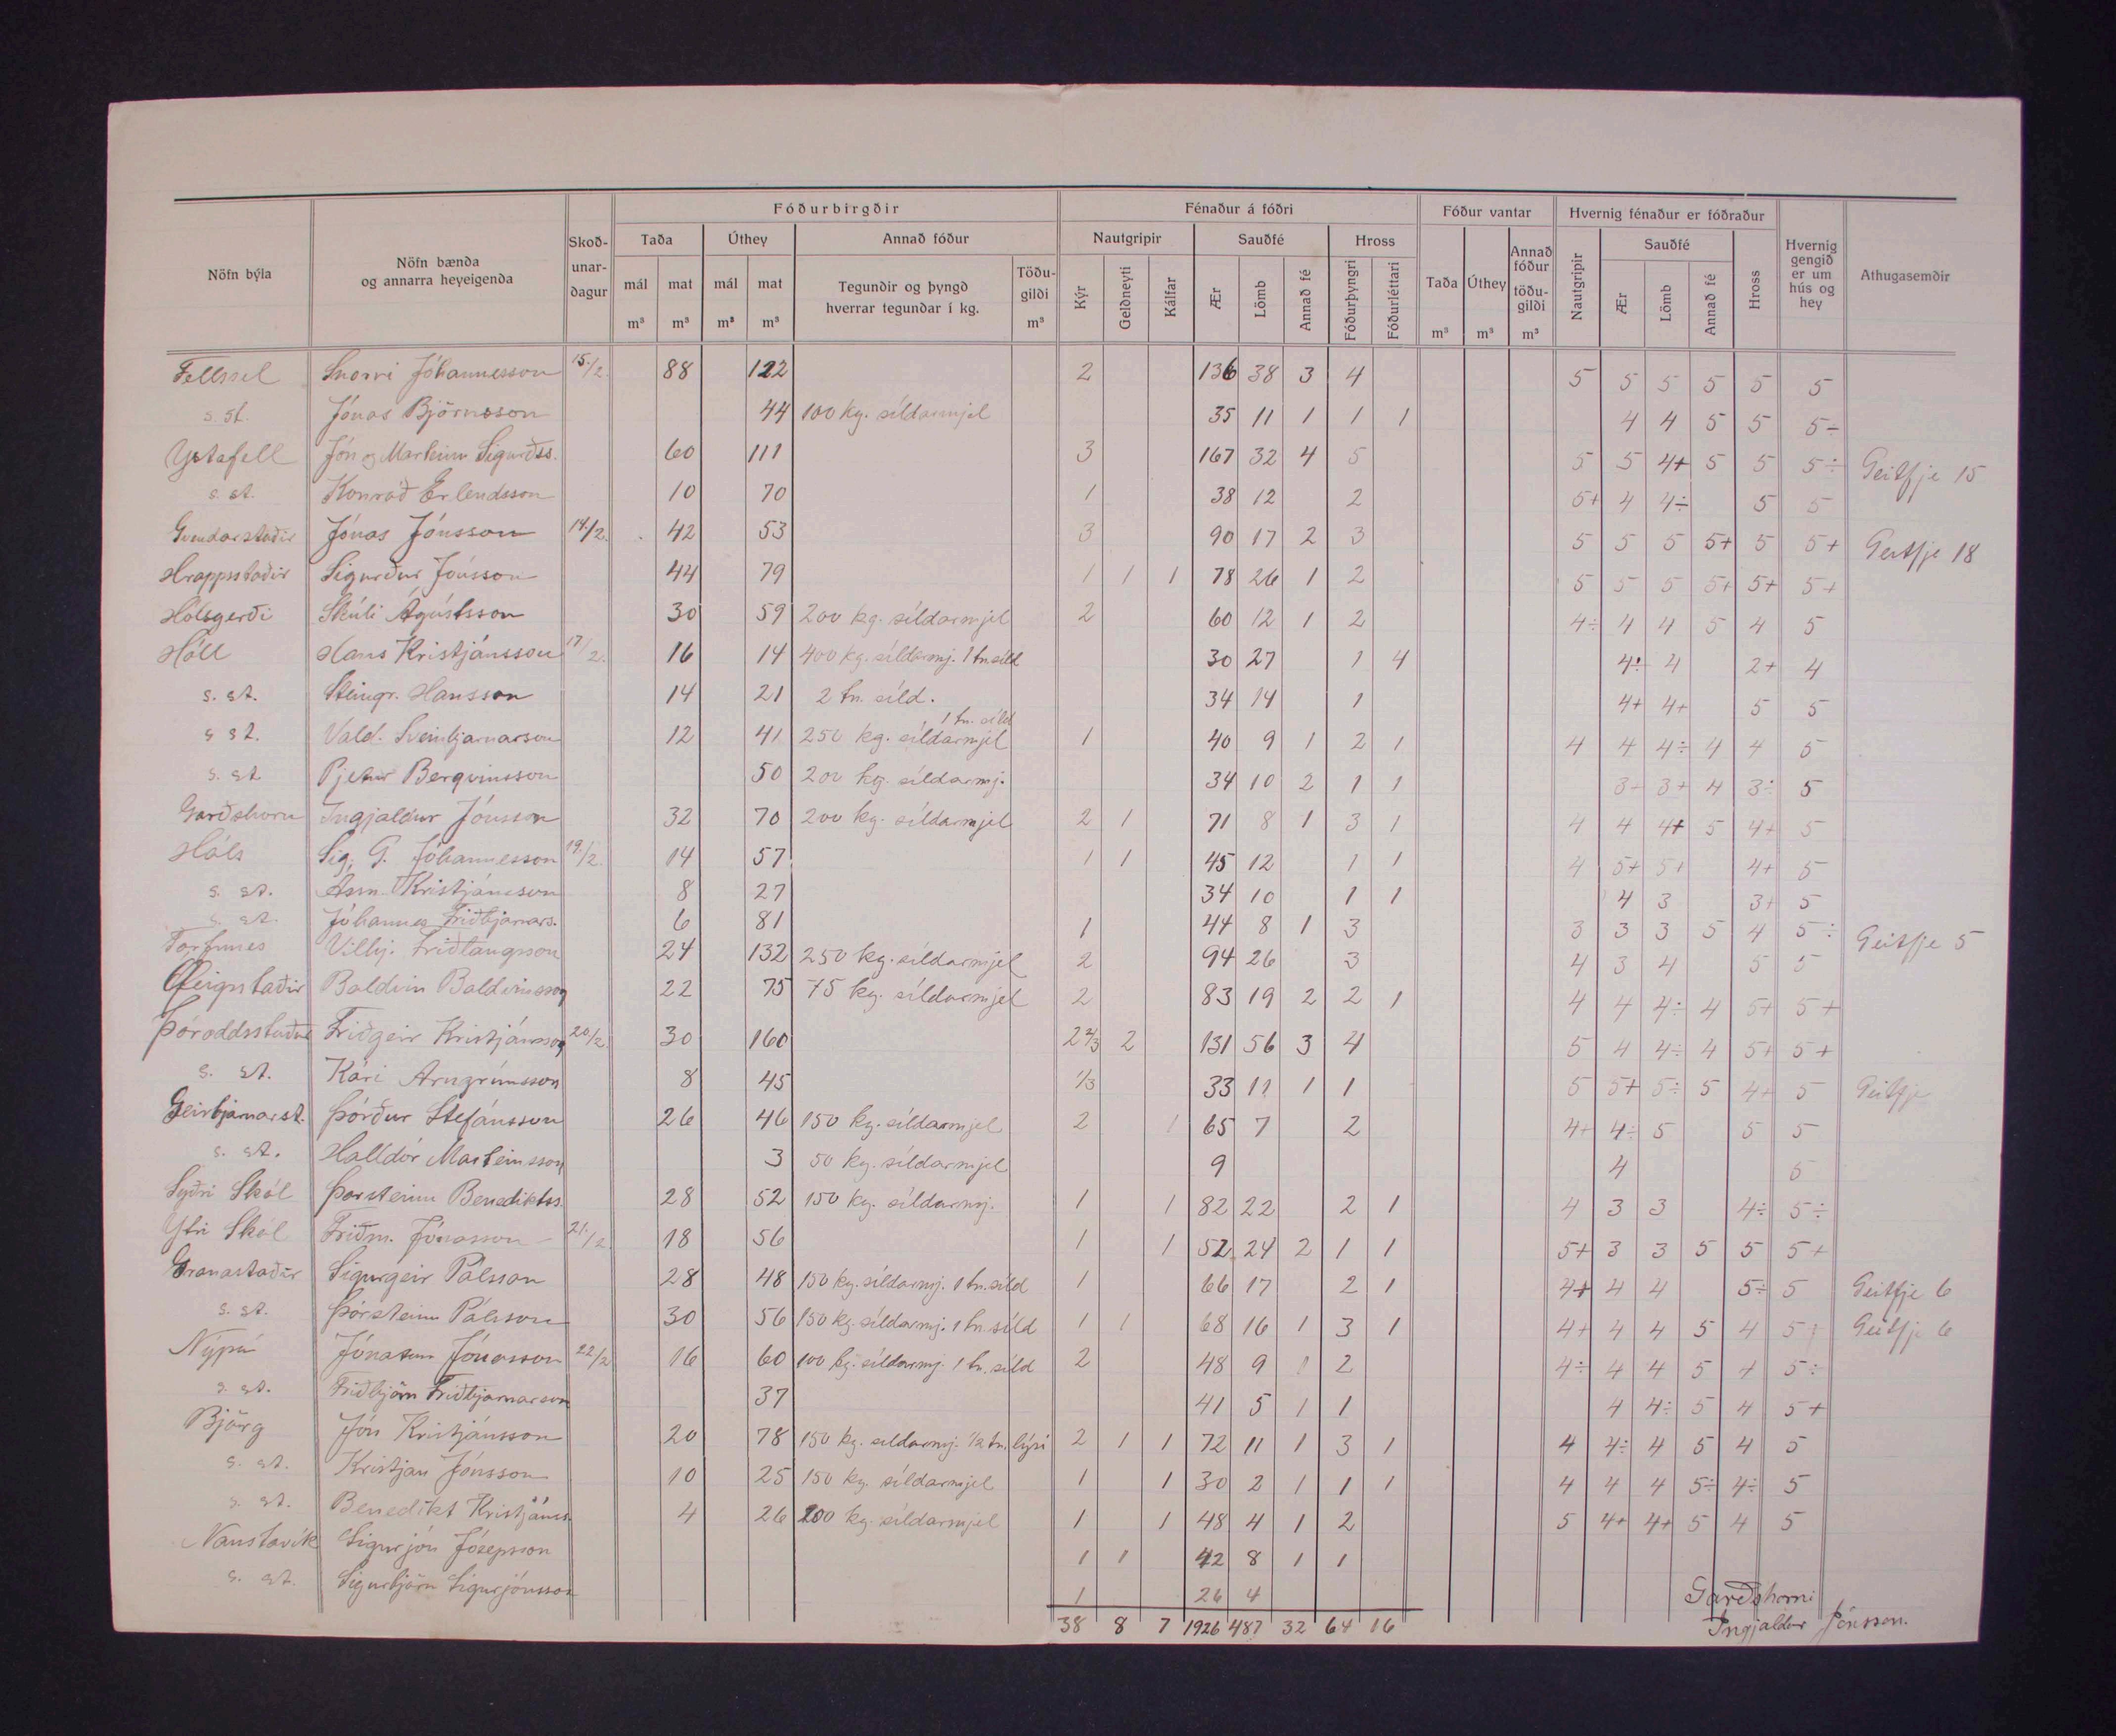 Fóðurbirgðir Fénaður á fóðri Fóður vantar Hvernig fénaður er fóðraður
Nöfn býla Nöfn bænda og annarra heyeigenda Skoð-unar-dagur Taða Úthey Annað fóður Nautgripir Sauðfé Hross Taða Úthey Annað fóður töðu-gildi Nautgripir Sauðfé Hross Hvernig gengið er um hús og hey Athugasemdir
mál mat mál mat Tegundir og þyngd hverrar tegundar í kg. Töðu-gildi Kýr Geldneyti Kálfar Ær Lömb Annað fé Fóðurþyngri Fóðurléttari Ær Lömb Annað fé
m³ m³ m³ m³ m³ m³ m³ m³
Fellssel Snorri Jóhannesson 15/2. 88 122 2 136 38 3 4 5 5 5 5 5 5
s. st. Jónas Björnsson 44 100 kg. síldarmjel 35 11 1 1 1 4 4 5 5 5-
Ystafell Jón og Marteinn Sigurðss. 60 111 3 167 32 4 5 5 5 4+ 5 5 5÷ Geitfje 15
s. st. Konráð Erlendsson 10 70 1 38 12 2 5+ 4 4÷ 5 5
Gvendarstaðir Jónas Jónsson 14/2. 42 53 3 90 17 2 3 5 5 5 5+ 5 5+ Geitfje 18
Hrappsstaðir Sigurður Jónsson 44 79 1 1 1 78 26 1 2 5 5 5 5+ 5+ 5+
Hólsgerði Skúli Ágústsson 30 59 200 kg. síldarmjel 2 60 12 1 2 4÷ 4 4 5 4 5
Hóll Hans Kristjánsson 17/2. 16 14 400 kg. síldarmj. 1 tn síld 30 27 1 4 4÷ 4 2+ 4
s. st. Steingr. Hansson 14 21 2 tn. síld. 34 14 1 4+ 4+ 5 5
s st. Vald. Sveinbjarnarson 12 41 250 kg. síldarmjel 1 tn. síld 1 40 9 1 2 1 4 4 4÷ 4 4 5
s. st Pjetur Bergvinsson 50 200 kg. síldarmj. 34 10 2 1 1 3+ 3+ 4 3÷ 5
Garðshorn Ingjaldur Jónsson 32 70 200 kg. síldarmjel 2 1 71 8 1 3 1 4 4 4+ 5 4+ 5
Háls Sig. G. Jóhannesson 19/2. 14 57 1 1 45 12 1 1 4 5+ 5+ 4+ 5
s. st. Kristjánsson 8 27 34 10 1 1 4 3 3+ 5
s. st. Jóhannes Friðbjarnars. 6 81 1 44 8 1 3 3 3 3 5 4 5÷ Geitfje 5
Torfunes Vilhj. Friðlaugsson 24 132 250 kg. síldarmjel 2 94 26 3 4 3 4 5 5
Ófeigstaðir Baldvin Baldvinsson 22 75 75 kg. síldarmjel 2 83 19 2 2 1 4 4 4÷ 4 5+ 5+
Þóroddsstaður Friðgeir Kristjánsson 20/2. 30 160 2 2/3 2 131 56 3 4 5 4 4÷ 4 5+ 5+
s. st. Kári Arngrímsson 8 45 1/3 33 11 1 1 5 5+ 5÷ 5 4+ 5 Geitfje
Geirbjarnarst. Þórður Stefánsson 26 46 150 kg. síldarmjel 2 1 65 7 2 4+ 4÷ 5 5 5
s. st. Halldór Marteinsson 3 50 kg. síldarmjel 9 4 5
Syðri Skál Þorsteinn Benediktss. 28 52 150 kg. síldarmj. 1 1 82 22 2 1 4 3 3 4÷ 5÷
Ytri Skál Friðm. Jónasson 21/2. 18 56 1 1 52 24 2 1 1 5+ 3 3 5 5 5+
Granastaðir Sigurgeir Pálsson 28 48 150 kg. síldarmj. 1 tn. síld 1 66 17 2 1 4+ 4 4 5÷ 5 Geitfje 6
s. st. Þórsteinn Pálsson 30 56 150 kg. síldarmj. 1 tn. síld 1 1 68 16 1 3 1 4+ 4 4 5 4 5+ Geitfje 6
Nýpá Jónatan Jónasson 22/2 16 60 100 kg. síldarmj. 1 tn. síld 2 48 9 1 2 4÷ 4 4 5 4 5÷
s. st. Friðbjörn Friðbjarnarson 37 41 5 1 1 4 4÷ 5 4 5+
Björg Jón Kristjánsson 20 78 150 kg. síldarmj. 1/2 tn. lýsi 2 1 1 72 11 1 3 1 4 4÷ 4 5 4 5
s. st. Kristján Jónsson 10 25 150 kg. síldarmjel 1 1 30 2 1 1 1 4 4 4 5÷ 4÷ 5
s. st. Benedikt Kristjáns. 4 26 200 kg. síldarmjel 1 1 48 4 1 2 5 4+ 4+ 5 4 5
Naustavík Sigurjón Jósepsson 1 1 42 8 1 1
s. st. Sigurbjörn Sigurjónsson 1 26 4
38 8 7 1926 487 32 64 16
Garðshorni
Ingjaldur Jónsson.